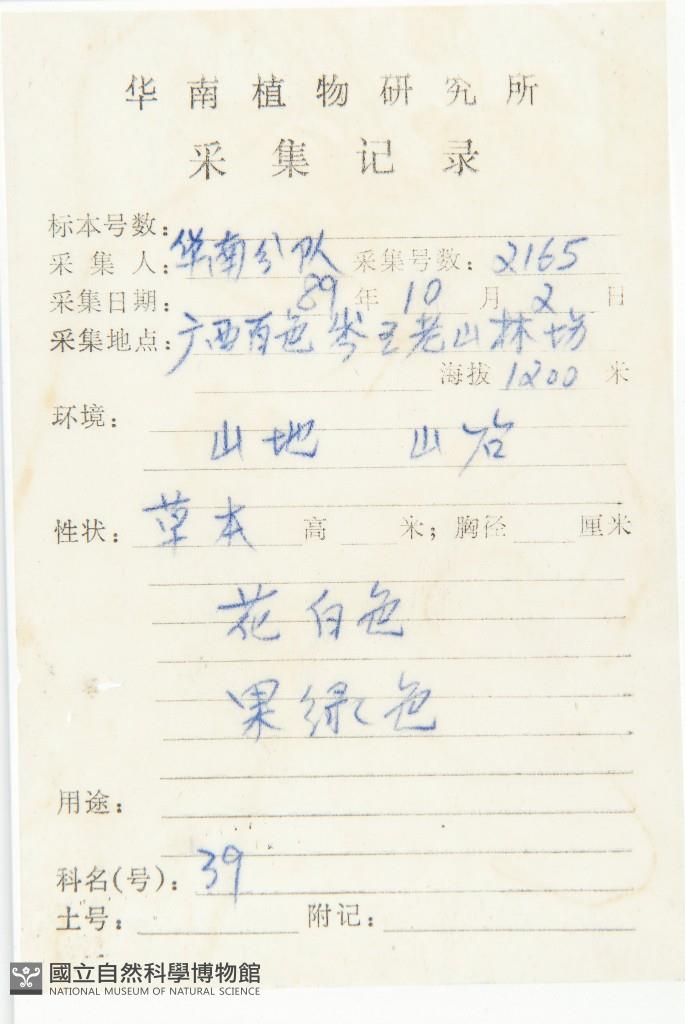 华南植物研究所
采集记录
标本号数:
采集人: 华南分队 采集号数: 2165
采集日期: 89年10月2日
采集地点: 广西百色岑王老山林场
海拔 1200 米
环境:
山地 山谷
性状: 草本 高 米; 胸径 厘米
花白色
果绿色
用途:
科名(号): 39
土号: 附记:
國立自然科學博物館
NATIONAL MUSEUM OF NATURAL SCIENCE